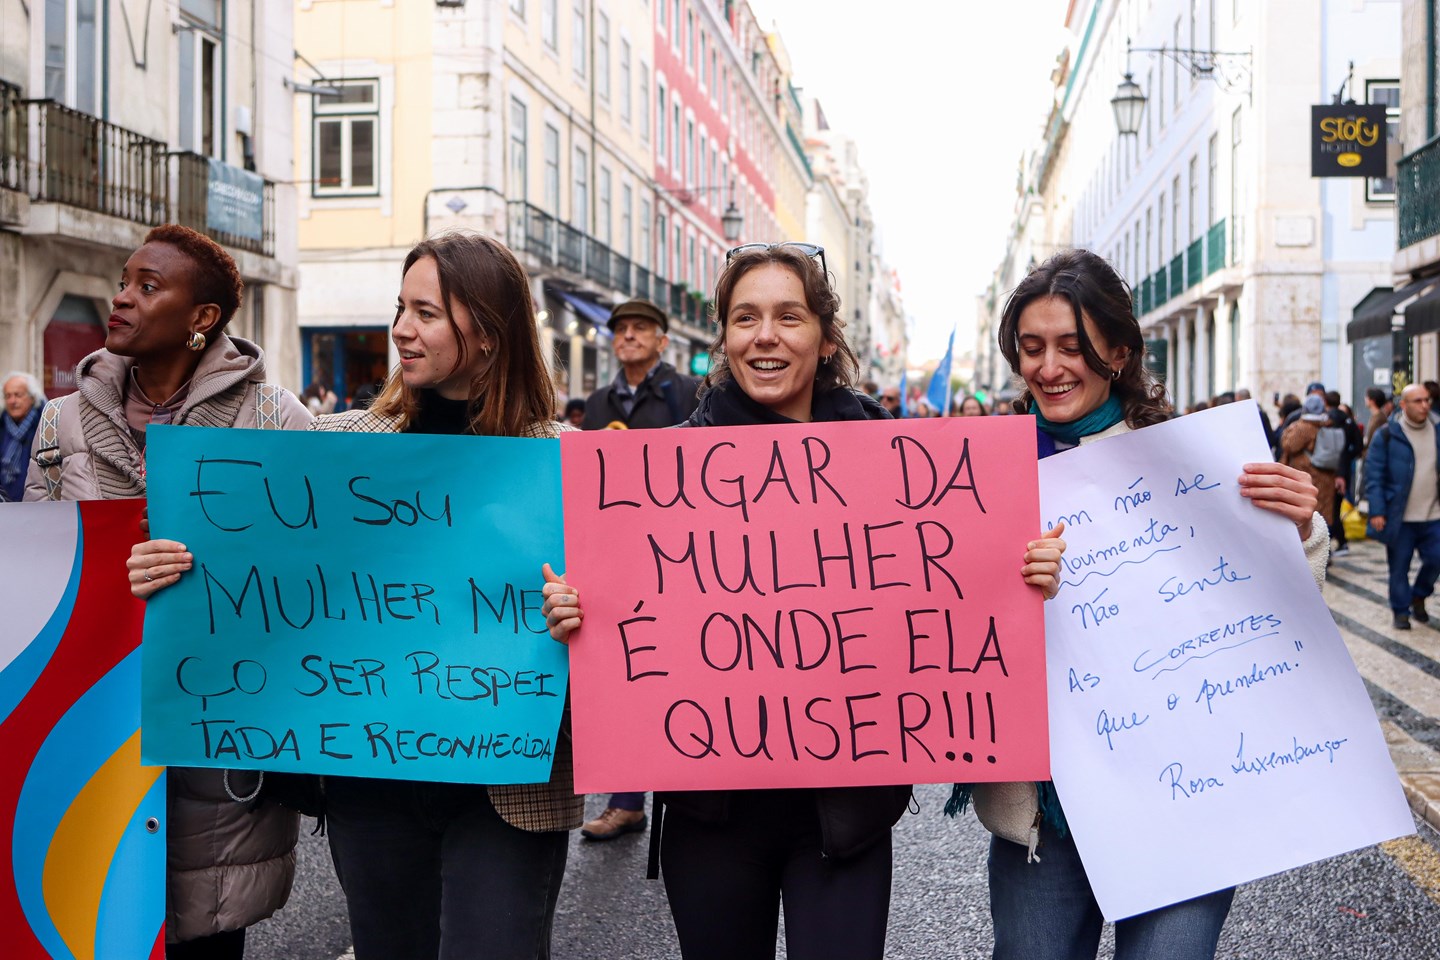 EU SOU
MULHER ME
ÇO SER RESPEI
TADA E RECONHECIDA
LUGAR DA
MULHER
É ONDE ELA
QUISER!!!
não se
movimenta,
não sente
AS CORRENTES
que o prendem."
Rosa Luxemburgo
Story
HOTEL